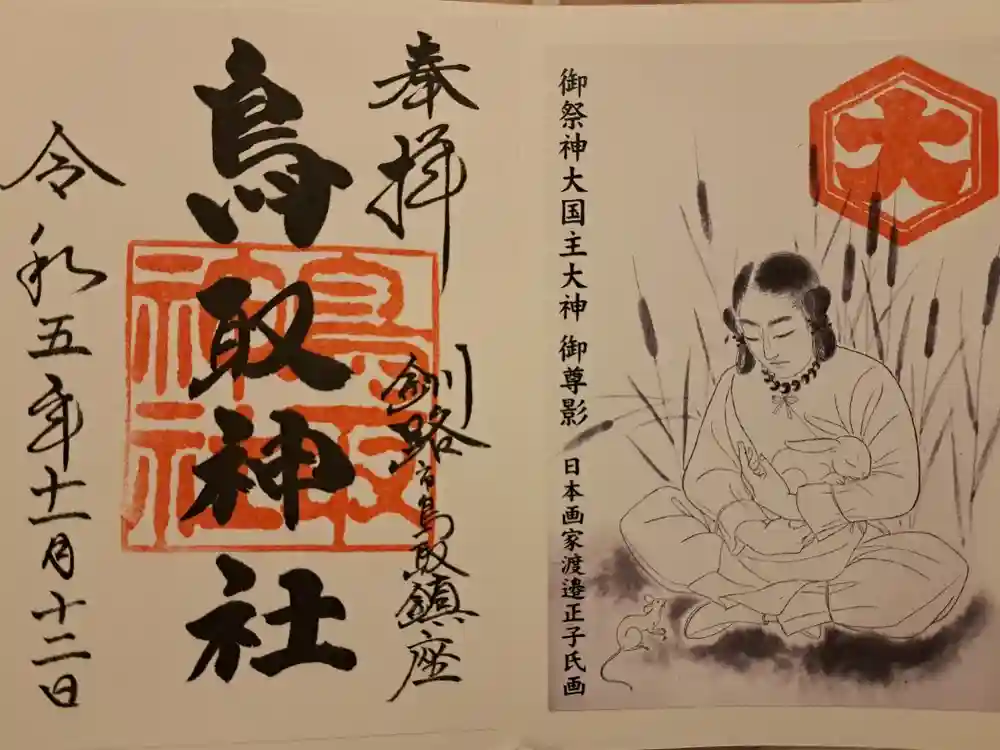 大
御祭神大国主大神 御尊影 日本画家渡邉正子氏画
奉拝
釧路市鳥取鎮座
鳥取神社
鳥取神社
令和五年十一月十二日